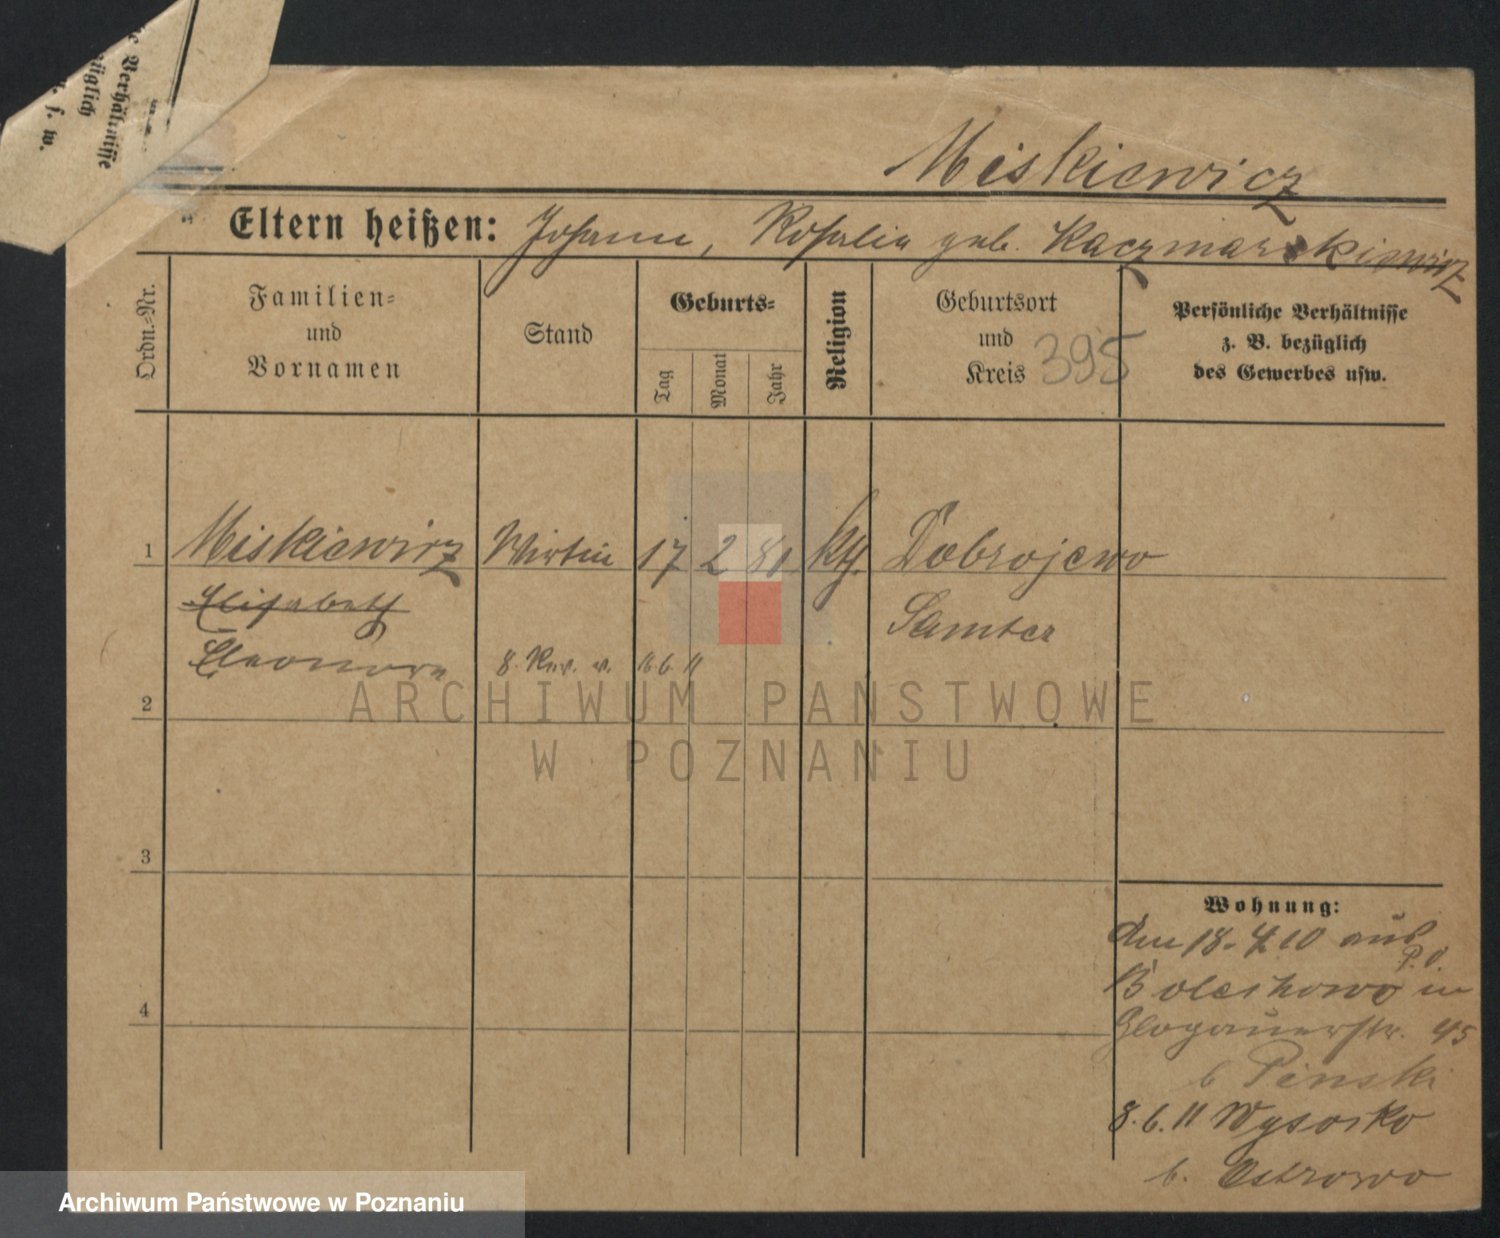 e Verhältnisse
züglich
u. s. w.
Miskiewicz
Eltern heißen: Johann, Rosalia geb. Kaczmarekiewicz
Ordn.-Nr.
Familien-
und
Vornamen
Stand
Geburts-
Tag
Monat
Jahr
Religion
Geburtsort
und
Kreis
395
Persönliche Verhältnisse
z. B. bezüglich
des Gewerbes usw.
1 Miskiewicz Wirtin 17 2 81 kth. Dobrojewo
Elisabeth Samter
Eleonore 8. Rev. v. 16 6 11
2
ARCHIWUM PAŃSTWOWE
W POZNANIU
3
Wohnung:
den 18. 4. 10 aus
Bolechowo P. O. in
4
Glogauerstr. 45
b Pinski
8. 6. 11 Wysocko
b. Ostrowo
Archiwum Państwowe w Poznaniu